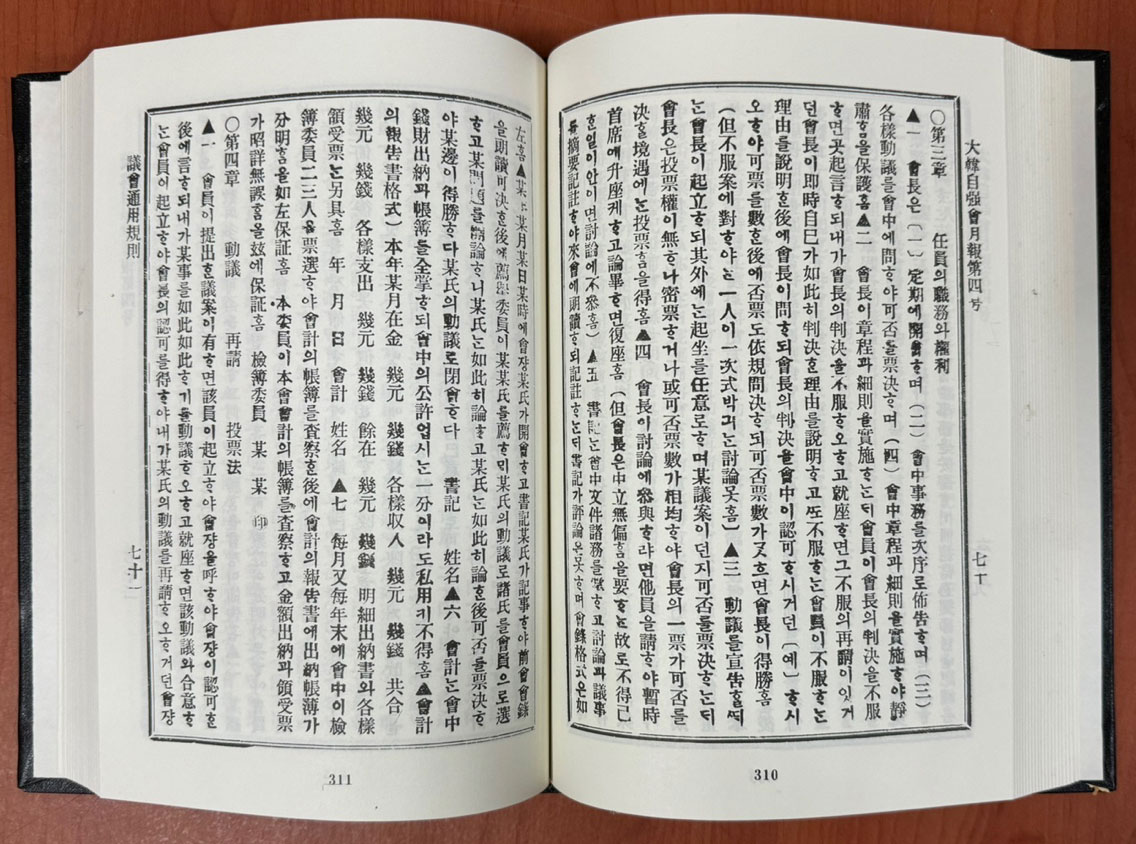 大韓自强會月報第四号
○第三章 任員의職務와權利
▲一 會長은 (一) 定期에開會ᄒᆞ며 (二) 會中事務를次序로佈告ᄒᆞ며 (三)
各樣動議를會中에問ᄒᆞ야可否를票決ᄒᆞ며 (四) 會中章程과細則을實施ᄒᆞ야靜
肅홈을保護홈▲二 會長이章程과細則을實施ᄒᆞᄂᆞᆫᄃᆡ會員이會長의判決을不服
ᄒᆞ면곳起言ᄒᆞ되내가會長의判決을不服ᄒᆞ오ᄒᆞ고就座ᄒᆞ면그不服의再請이잇거
던會長이即時自己가如此히判決ᄒᆞᆫ理由를說明ᄒᆞ고ᄯᅩ不服ᄒᆞᄂᆞᆫ會員이不服ᄒᆞᄂᆞᆫ
理由를說明ᄒᆞᆫ後에會長이問ᄒᆞ되會長의判決을會中이認可ᄒᆞ시거던 (예) ᄒᆞ시
오ᄒᆞ야可票를數ᄒᆞᆫ後에否票도依規問決ᄒᆞ되可否票數가ᄀᆞᆺ흐면會長이得勝홈
(但不服案에對ᄒᆞ야ᄂᆞᆫ一人이一次式밧긔ᄂᆞᆫ討論못홈) ▲三 動議를宣告ᄒᆞᆯᄯᅢ
ᄂᆞᆫ會長이起立ᄒᆞ되其外에ᄂᆞᆫ起坐를任意로ᄒᆞ며某議案이던지可否를票決ᄒᆞᄂᆞᆫᄃᆡ
會長은投票權이無ᄒᆞ나密票ᄒᆞ거나或可否票數가相均ᄒᆞ야會長의一票가可否를
決ᄒᆞᆯ境遇에ᄂᆞᆫ投票홈을得홈▲四 會長이討論에參與ᄒᆞ랴면他員을請ᄒᆞ야暫時
首席에升座케ᄒᆞ고論畢ᄒᆞ면復座홈 (但會長은中立無偏홈을要ᄒᆞᄂᆞᆫ故로不得已
ᄒᆞᆫ일이안이면討論에不參홈) ▲五 書記ᄂᆞᆫ會中文件諸務를掌ᄒᆞ고討論과議事
를摘要記註ᄒᆞ야來會에朗讀ᄒᆞ되記註ᄒᆞᄂᆞᆫᄃᆡ書記가評論은못ᄒᆞ며會錄格式은如
七十
310
左홈▲某年某月某日某時에會장某氏가開會ᄒᆞ고書記某氏가記事ᄒᆞ야前會會錄
을朗讀可決ᄒᆞᆫ後에薦擧委員이某某氏를薦ᄒᆞᄆᆡ某氏의動議로諸氏를會員으로選
ᄒᆞ고某問題를辯論ᄒᆞ니某氏ᄂᆞᆫ如此히論ᄒᆞ고某氏ᄂᆞᆫ如此히論ᄒᆞᆫ後可否를票決ᄒᆞ
야某邊이得勝ᄒᆞ다某氏의動議로閉會ᄒᆞ다 書記 姓名▲六 會計ᄂᆞᆫ會中
錢財出納과帳簿를全掌ᄒᆞ되會中의公許업시ᄂᆞᆫ一分이라도私用키不得홈▲會計
의報告書格式) 本年某月在金 幾元 幾錢 各樣収入 幾元 幾錢 共合
幾元 幾錢 各樣支出 幾元 幾錢 餘在 幾元 幾錢 明細出納書와各樣
領受票ᄂᆞᆫ另具홈 年 月 日 會計 姓名 ▲七 每月又每年末에會中이檢
簿委員二三人을票選ᄒᆞ야會計의帳簿를査察ᄒᆞᆫ後에會計의報告書에出納帳簿가
分明홈을如左保証홈 本委員이本會會計의帳簿를査察ᄒᆞ고金額出納과領受票
가昭詳無誤홈을玆에保証홈 檢簿委員 某 某 印
○第四章 動議 再請 投票法
▲一 會員이提出ᄒᆞᆯ議案이有ᄒᆞ면該員이起立ᄒᆞ야會장을呼ᄒᆞ야會장이認可ᄒᆞᆫ
後에言ᄒᆞ되내가某事를如此如此ᄒᆞ기를動議ᄒᆞ오ᄒᆞ고就座ᄒᆞ면該動議와合意ᄒᆞ
ᄂᆞᆫ會員이起立ᄒᆞ야會長의認可를得ᄒᆞ야내가某氏의動議를再請ᄒᆞ오ᄒᆞ거던會장
議會通用規則
七十一
311